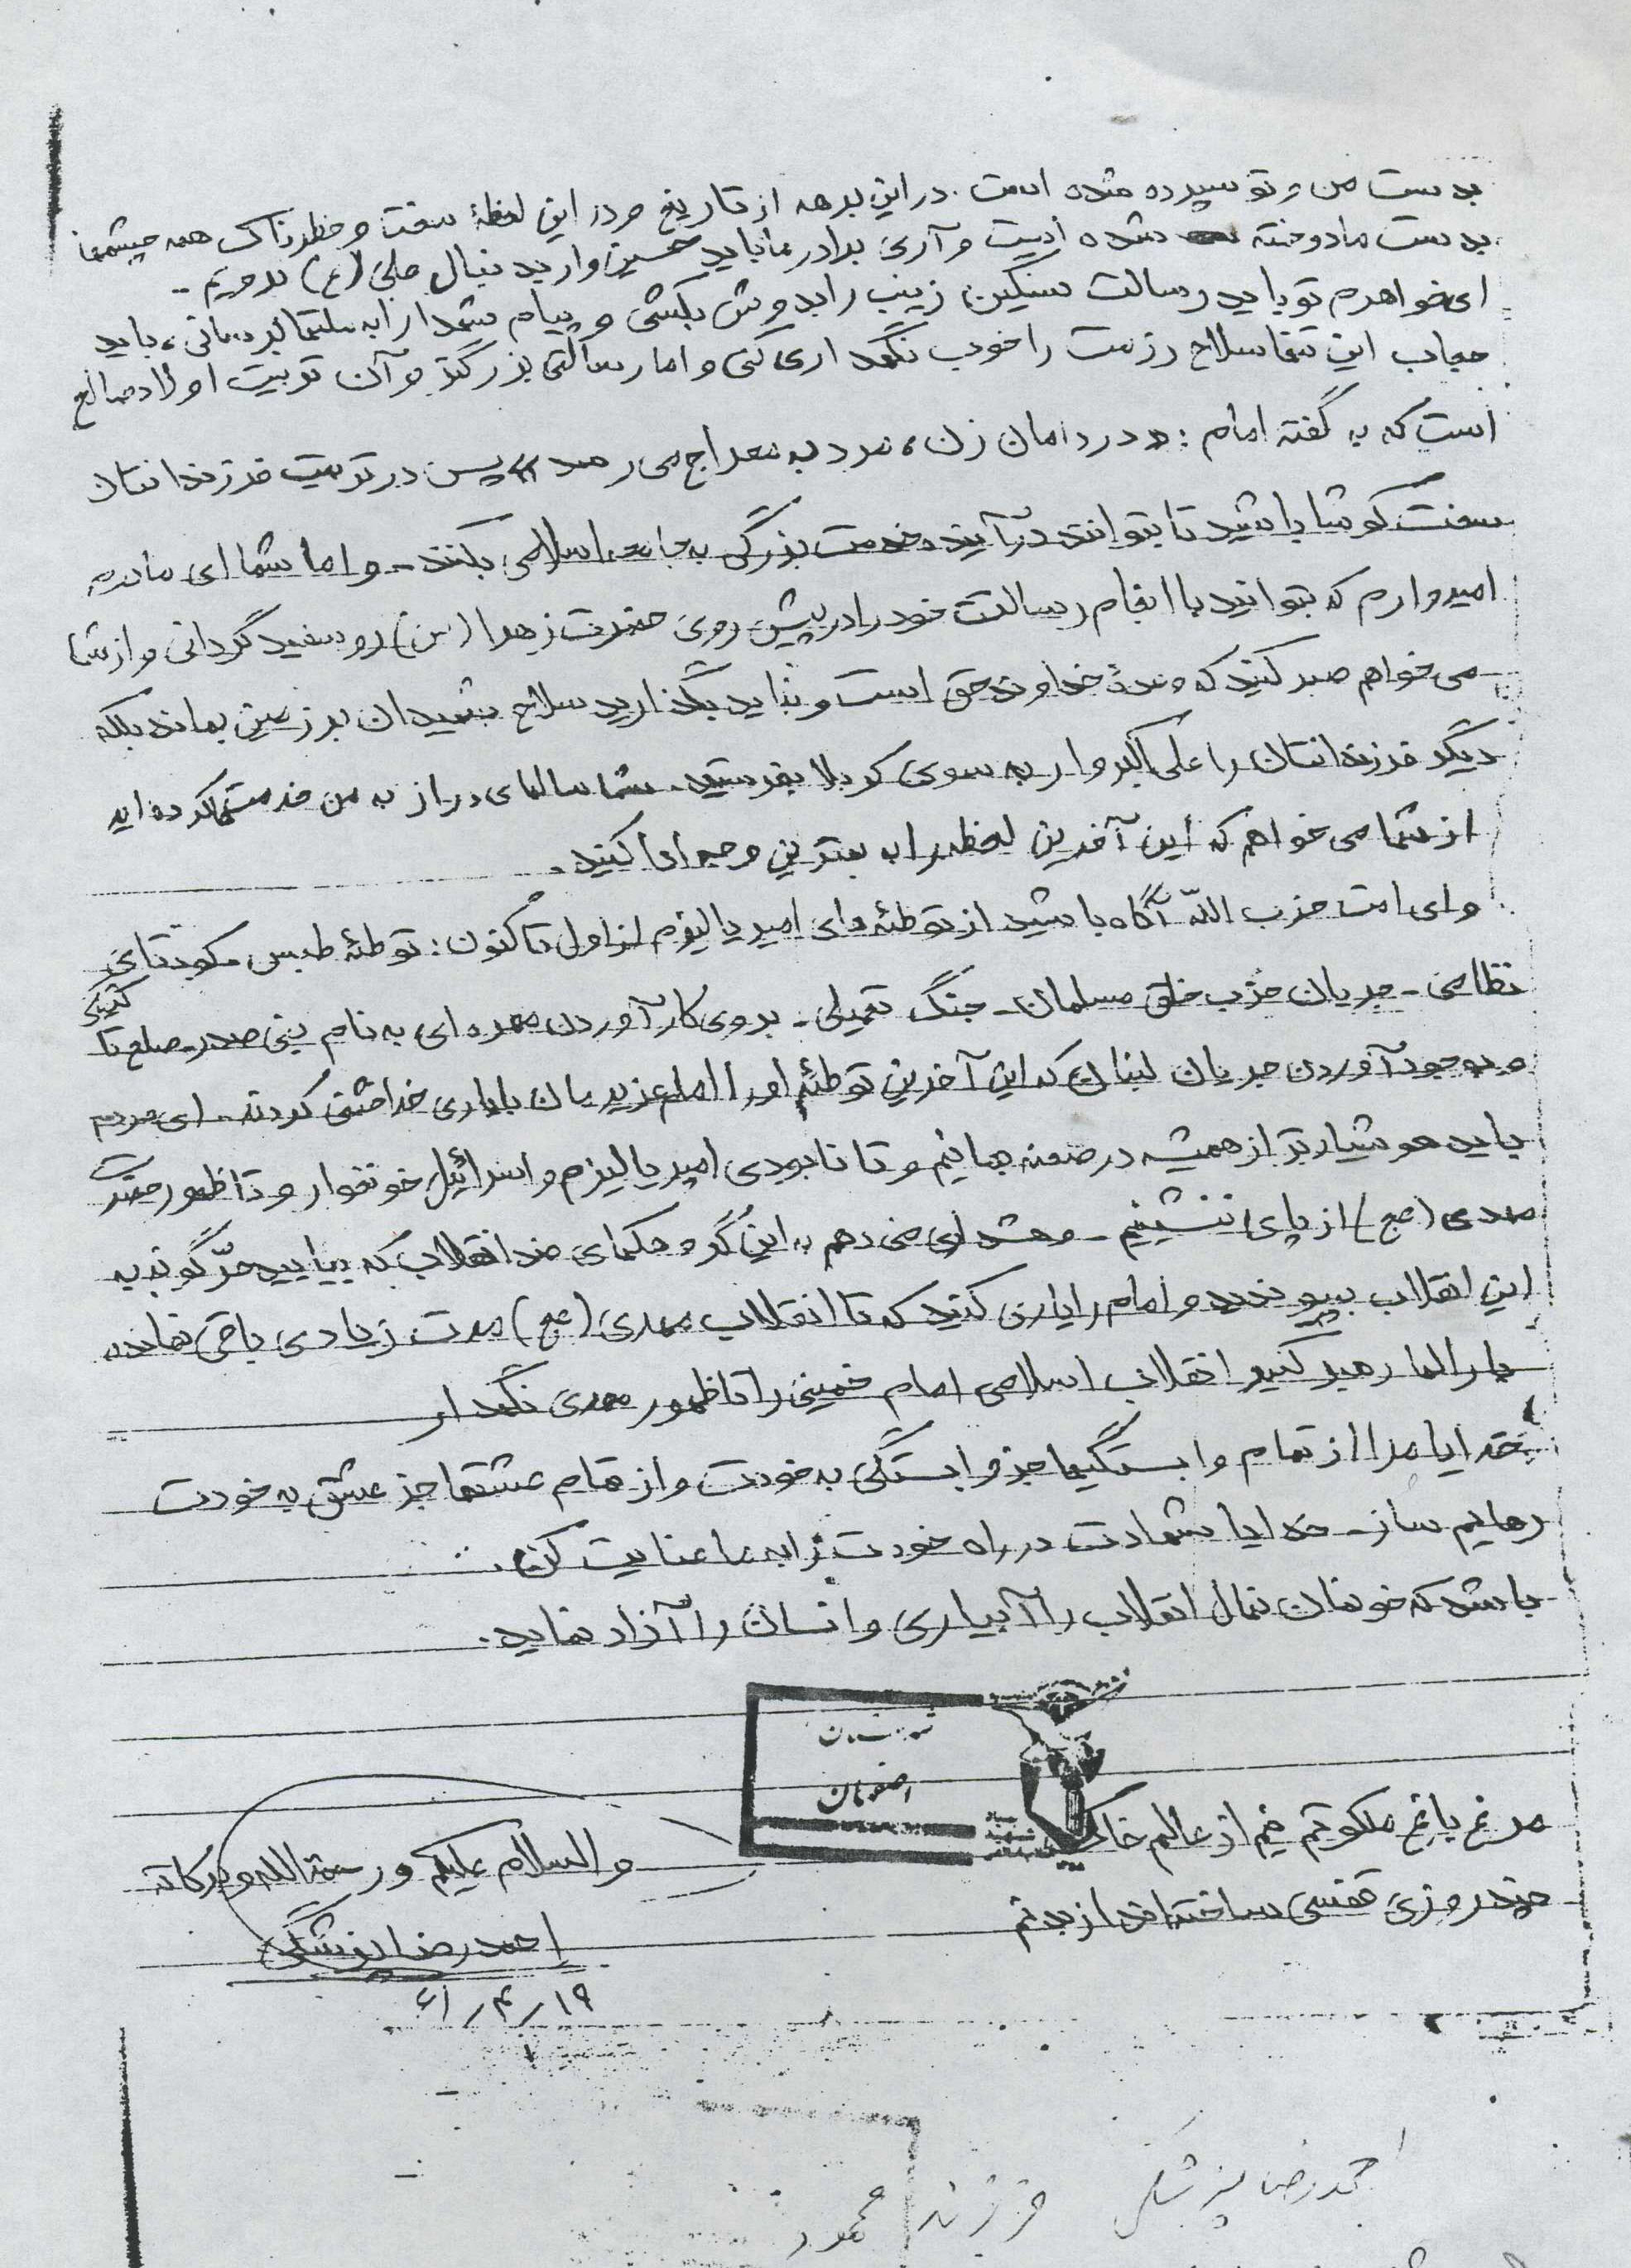 بدست من و تو سپرده شده است. در این برهه از تاریخ و در این لحظهٔ سخت و خطرناک همه چشمها
بدست ما دوخته شده است و آری برادر ما باید حسین وار بدنبال علی (ع) برویم -
ای خواهرم تو باید رسالت سنگین زینب را بدوش بکشی و پیام شهدا را به ملتها برسانی، باید
حجاب این تنها سلاح رزمت را خوب نگهداری کنی و اما رسالتی بزرگتر و آن تربیت اولاد صالح
است که به گفته امام: «در دامان زن، مرد به معراج می رسد» پس در تربیت فرزندانتان
سخت کوشا باشید تا بتوانند در آینده خدمت بزرگی به جامعه اسلامی بکنند - و اما شما ای مادرم
امیدوارم که بتوانید با انجام رسالتت خود را در پیش روی حضرت زهرا (س) رو سفید گردانی و از شما
می خواهم صبر کنید که وعدهٔ خداوند حق است و نباید بگذارید سلاح شهیدان بر زمین بماند بلکه
دیگر فرزندانتان را علی اکبر وار به سوی کربلا بفرستید. شما سالهای دراز به من خدمتها کرده اید
از شما می خواهم که این آخرین لحظه را به بهترین وجه ادا کنید.
و ای امت حزب اللّه آگاه باشید از توطئه های امپریالیزم از اول تاکنون: توطئه طبس، کودتای
نظامی - جریان حزب خلق مسلمان - جنگ تحمیلی - بروی کار آوردن مهره ای به نام بنی صدر - صلح تا
و بوجود آوردن جریان لبنان که این آخرین توطئه او را امام عزیزمان با یاری خدا خنثی کردند. ای مردم
باید هوشیارتر از همیشه در صحنه بمانیم و تا نابودی امپریالیزم و اسرائیل خونخوار و تا ظهور حضرت
مهدی (عج) از پای ننشینیم - و هشداری می دهم به این گروهکهای ضد انقلاب که بیایید حرّ گونه به
این انقلاب بپیوندید و امام را یاری کنید که تا انقلاب مهدی (عج) مدت زیادی باقی نمانده
بار الها رهبر کبیر انقلاب اسلامی امام خمینی را تا ظهور مهدی نگهدار
خدایا مرا از تمام وابستگیها جز وابستگی به خودت و از تمام عشقها جز عشق به خودت
رهایم ساز - خدایا شهادت در راه خودت را به ما عنایت کن.
باشد که خونمان نهال انقلاب را آبیاری و انسان را آزاد نماید.
اصفهان
مرغ باغ ملکوتم نیم از عالم خاک
چند روزی قفسی ساخته اند از بدنم
والسلام علیکم و رحمة الله و برکاته
احمدرضا پزشکی
۱۹ / ۴ / ۶۱
احمدرضا پزشکی فرزند محمود